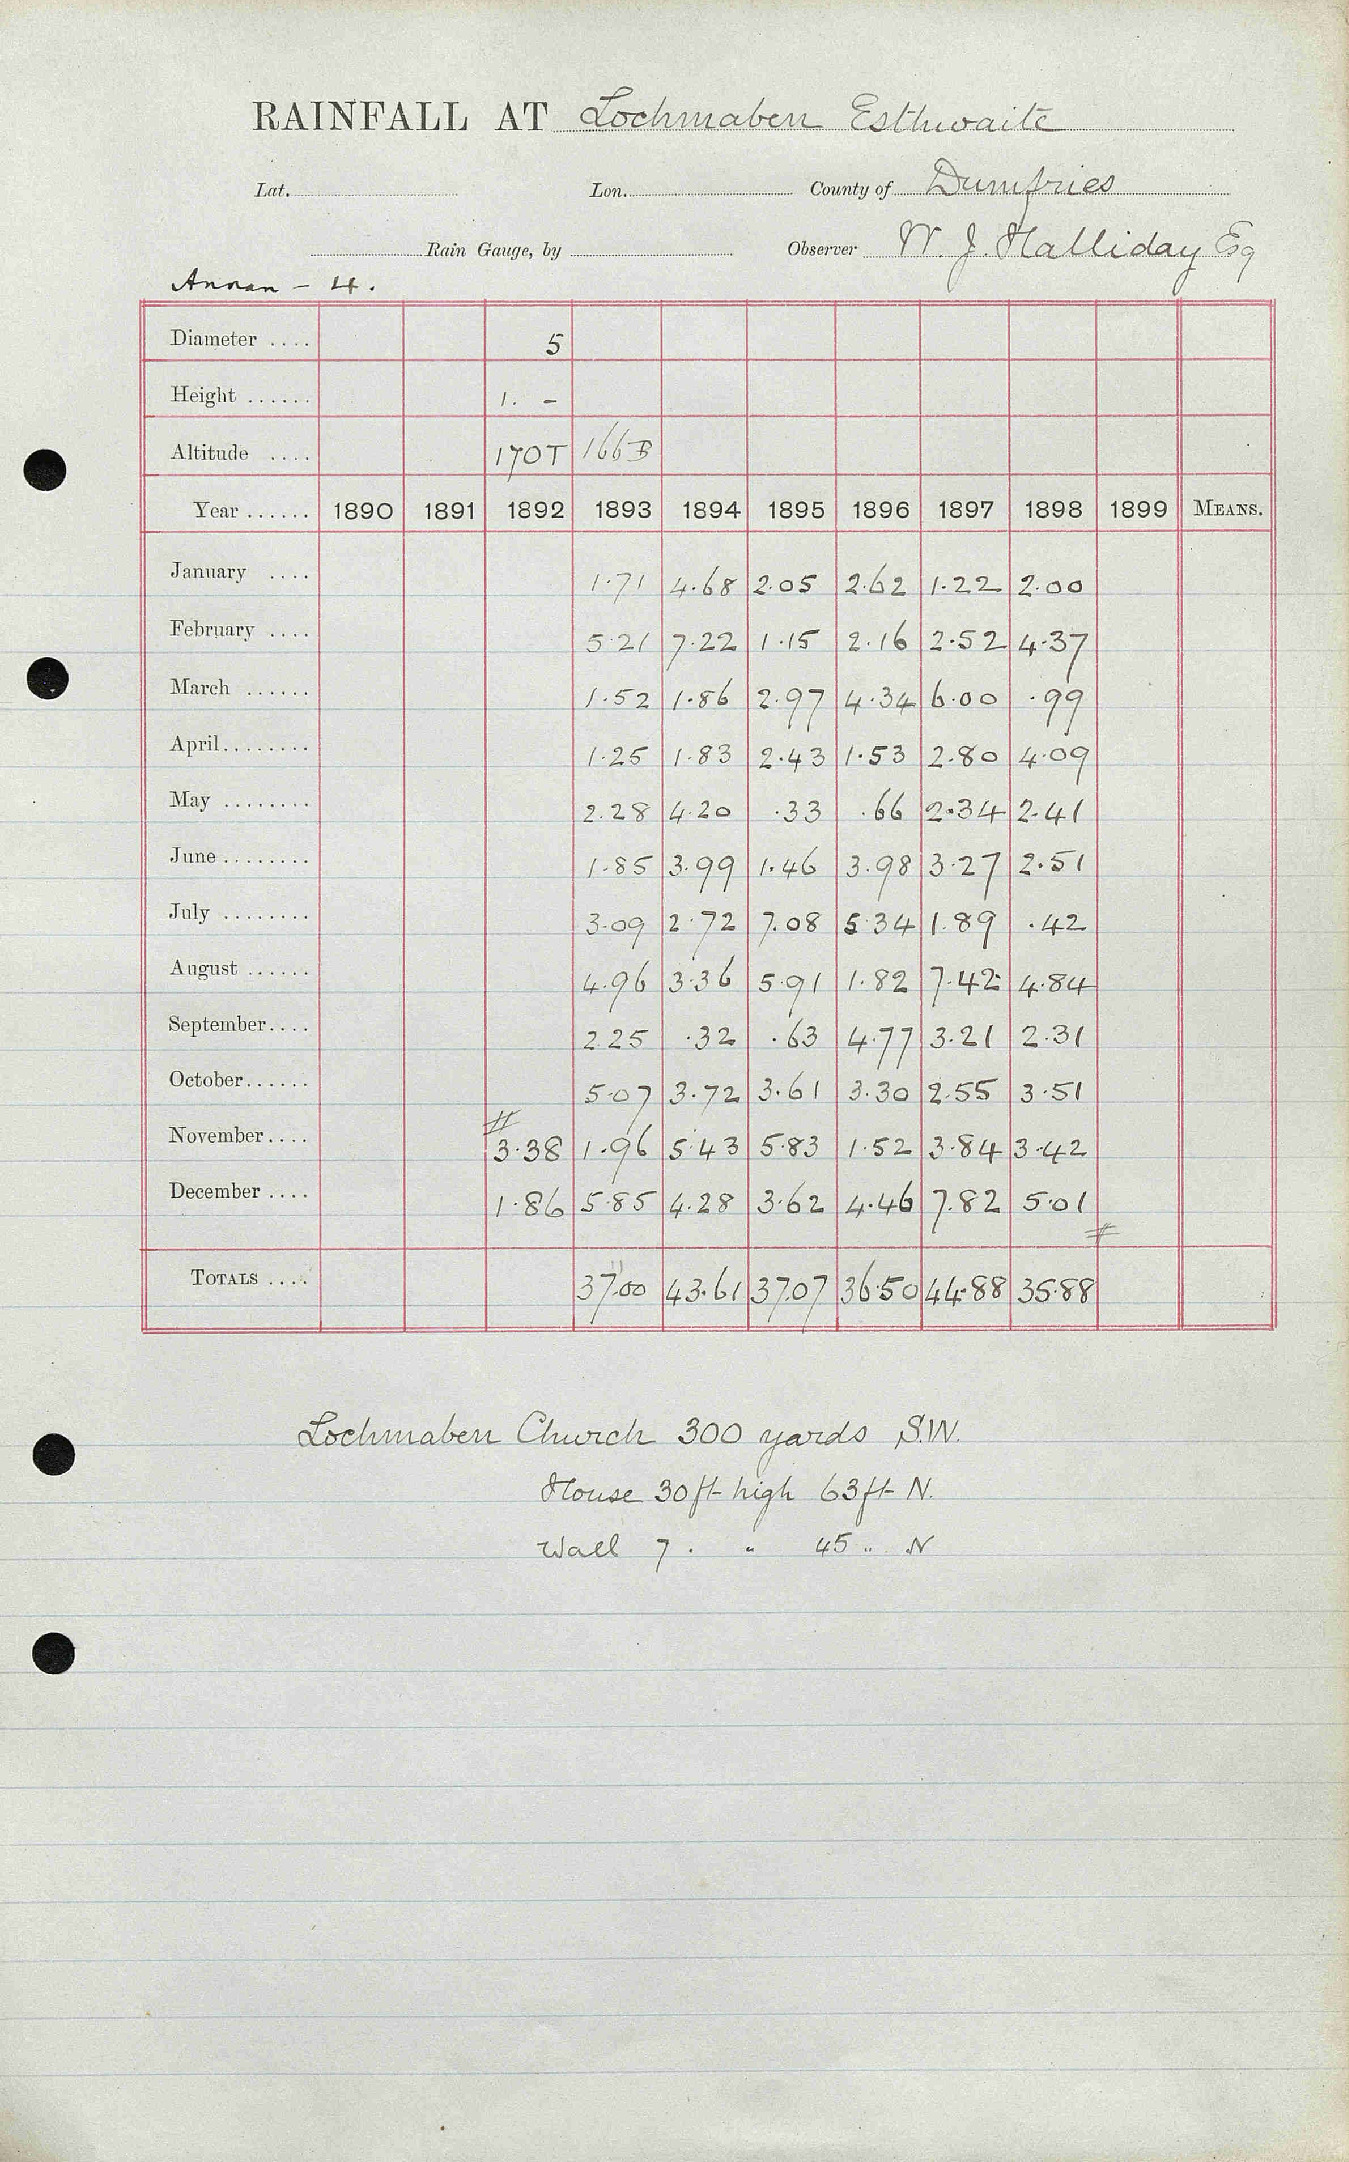 RAINFALL AT Lochmaben Esthwaite
Lat. Lon. County of Dumfries
Rain Gauge, by Observer W. J. Halliday Esq
Annan - 4.
Diameter .... 5
Height ...... 1. -
Altitude .... 170T 166B
Year ...... 1890 1891 1892 1893 1894 1895 1896 1897 1898 1899 MEANS.
January .... 1.71 4.68 2.05 2.62 1.22 2.00
February .... 5.21 7.22 1.15 2.16 2.52 4.37
March ...... 1.52 1.86 2.97 4.34 6.00 .99
April........ 1.25 1.83 2.43 1.53 2.80 4.09
May ........ 2.28 4.20 .33 .66 2.34 2.41
June ........ 1.85 3.99 1.46 3.98 3.27 2.51
July ........ 3.09 2.72 7.08 5.34 1.89 .42
August ...... 4.96 3.36 5.91 1.82 7.42 4.84
September.... 2.25 .32 .63 4.77 3.21 2.31
October...... 5.07 3.72 3.61 3.30 2.55 3.51
November.... 3.38 1.96 5.43 5.83 1.52 3.84 3.42
December .... 1.86 5.85 4.28 3.62 4.46 7.82 5.01
TOTALS .... 37.00 43.61 37.07 36.50 44.88 35.88
Lochmaben Church 300 yards S.W.
House 30ft high 63ft N.
Wall 7 . " 45 " N